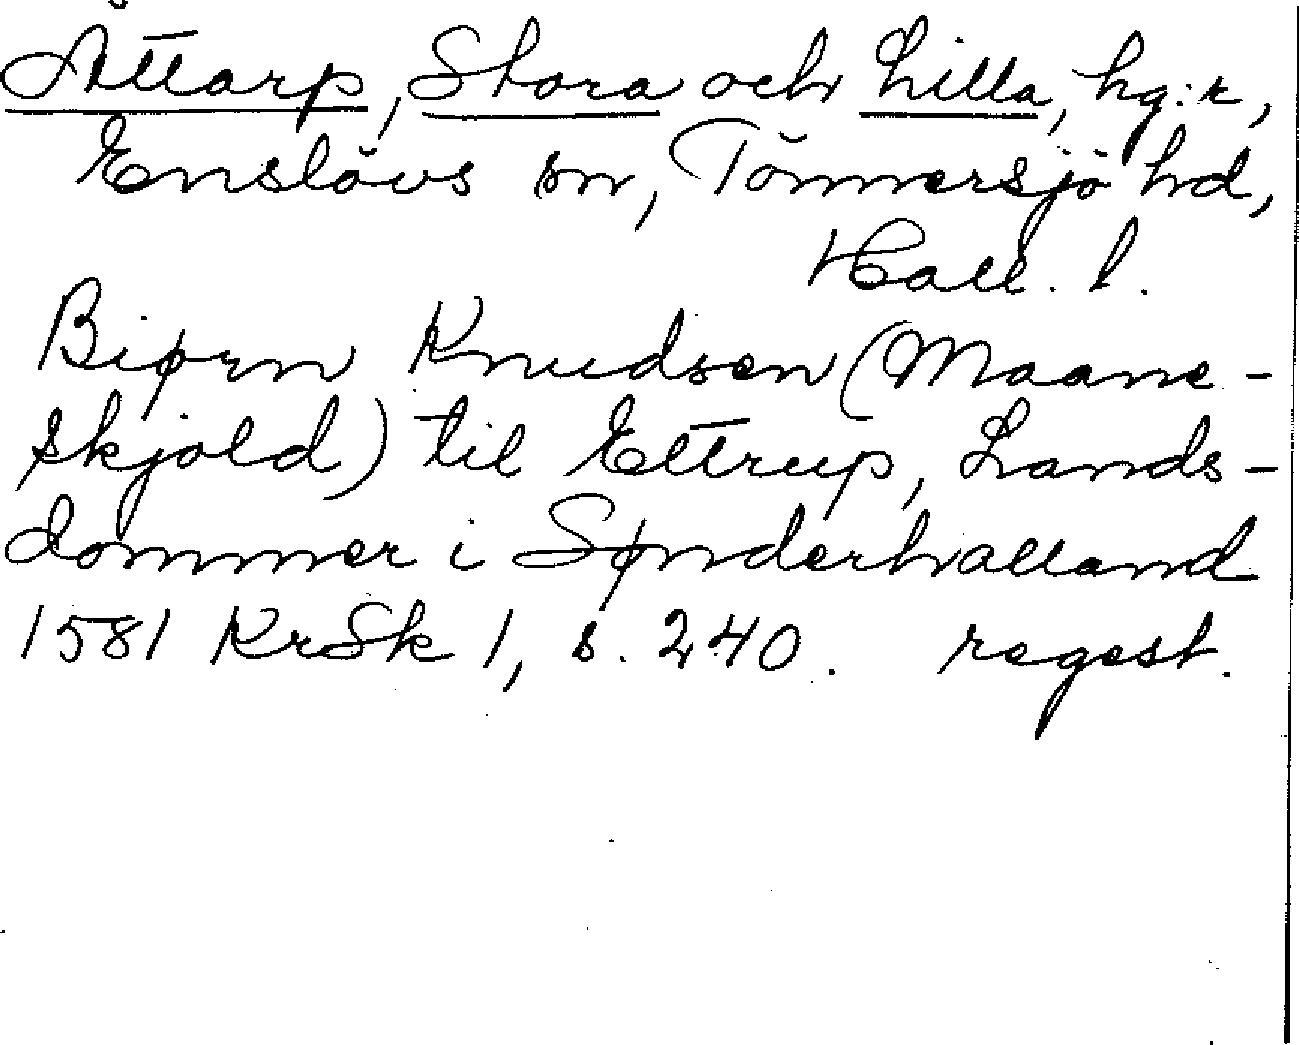 Ättarp, Stora och Lilla, hg:r,
Enslövs sn, Tönnersjö hd,
Hall. l.
Biørn Knudsen (Maane-
skjold) til Ettrup, Lands-
dommer i Sønderhalland
1581 KrSk 1, s. 240. regest.